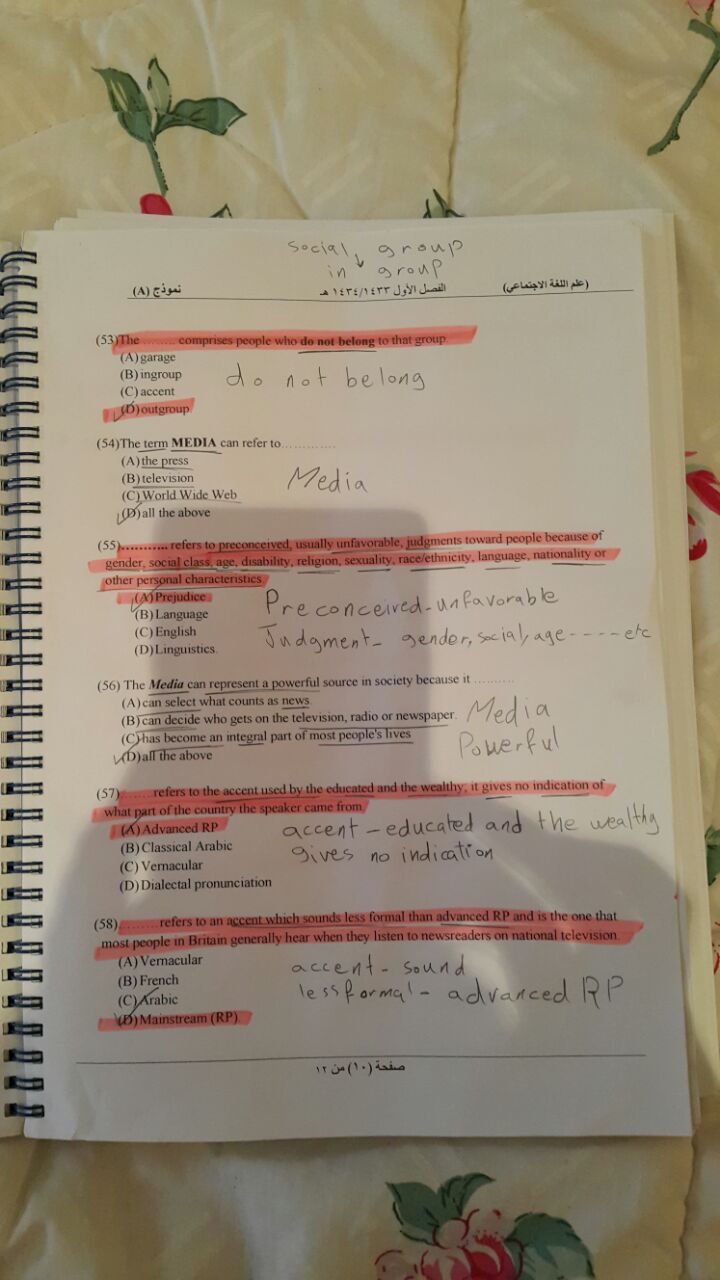 social group
in group
(علم اللغة الاجتماعي) الفصل الأول ١٤٣٤/١٤٣٣ هـ نموذج (A)
(53)The ........ comprises people who do not belong to that group
(A) garage
(B) ingroup
(C) accent
(D) outgroup
do not belong
(54)The term MEDIA can refer to.............
(A) the press
(B) television
(C) World Wide Web
(D) all the above
Media
(55)........... refers to preconceived, usually unfavorable, judgments toward people because of
gender, social class, age, disability, religion, sexuality, race/ethnicity, language, nationality or
other personal characteristics
(A) Prejudice
(B) Language
(C) English
(D) Linguistics.
Preconceived - unfavorable
Judgment - gender, social, age ---- etc
(56) The Media can represent a powerful source in society because it ..........
(A) can select what counts as news
(B) can decide who gets on the television, radio or newspaper.
(C) has become an integral part of most people's lives
(D) all the above
Media
Powerful
(57)........refers to the accent used by the educated and the wealthy; it gives no indication of
what part of the country the speaker came from
(A) Advanced RP
(B) Classical Arabic
(C) Vernacular
(D) Dialectal pronunciation
accent - educated and the wealthy
gives no indication
(58).........refers to an accent which sounds less formal than advanced RP and is the one that
most people in Britain generally hear when they listen to newsreaders on national television.
(A) Vernacular
(B) French
(C) Arabic
(D) Mainstream (RP)
accent - sound
less formal - advanced RP
صفحة (١٠) من ١٢